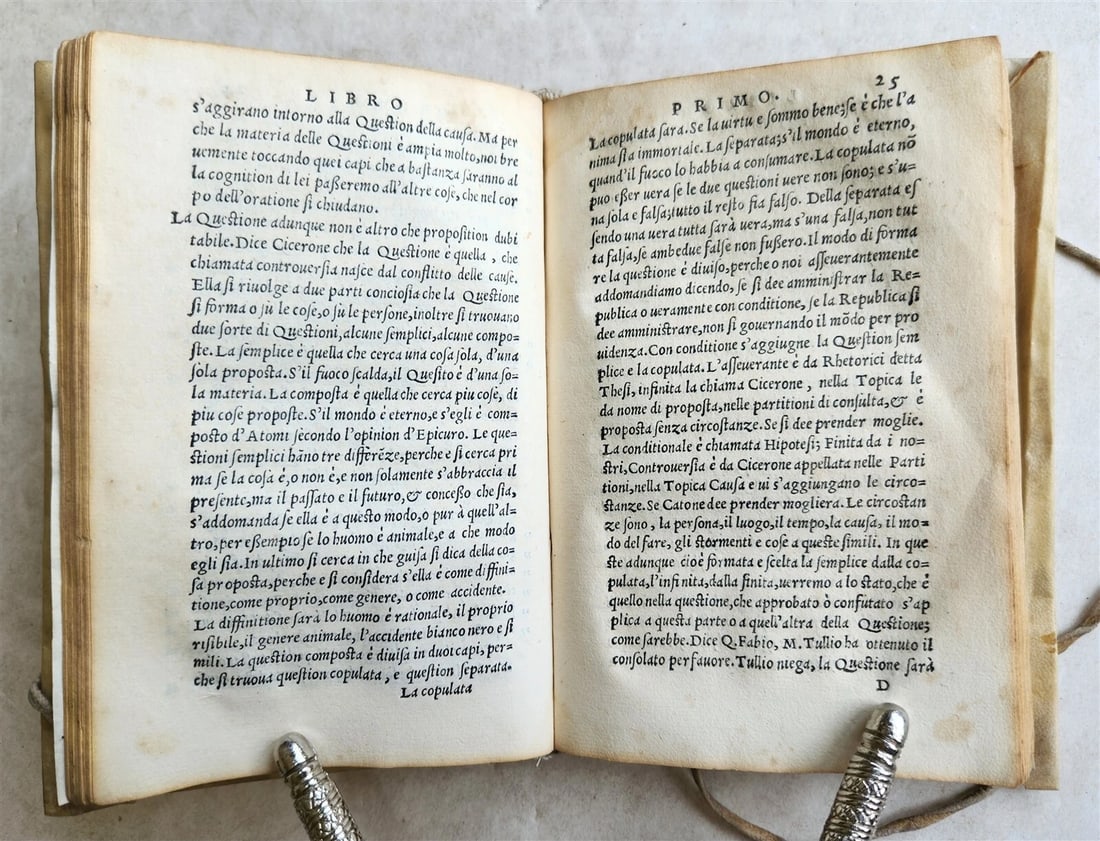 LIBRO
s'aggirano intorno alla Question della causa. Ma per
che la materia delle Questioni è ampia molto, noi bre
uemente toccando quei capi che a bastanza saranno al
la cognition di lei passeremo all'altre cose, che nel cor
po dell'oratione si chiudano.
La Questione adunque non è altro che proposition dubi
tabile. Dice Cicerone che la Questione è quella, che
chiamata controuersia nasce dal conflitto delle cause.
Ella si riuolge a due parti conciosia che la Questione
si forma o sù le cose, o sù le persone, inoltre si truouano
due sorte di Questioni, alcune semplici, alcune compo=
ste. La semplice è quella che cerca una cosa sola, d'una
sola proposta. S'il fuoco scalda, il Quesito è d'una so=
la materia. La composta è quella che cerca piu cose, di
piu cose proposte. S'il mondo è eterno, e s'egli è com=
posto d'Atomi secondo l'opinion d'Epicuro. Le que=
stioni semplici hāno tre differēze, perche e si cerca pri
ma se la cosa è, o non è, e non solamente s'abbraccia il
presente, ma il passato e il futuro, & concesso che sia,
s'addomanda se ella è a questo modo, o pur à quell'al=
tro, per essempio se lo huomo è animale, e a che modo
egli sia. In ultimo si cerca in che guisa si dica della co=
sa proposta, perche e si considera s'ella è come diffini=
tione, come proprio, come genere, o come accidente.
La diffinitione sarà lo huomo è rationale, il proprio
risibile, il genere animale, l'accidente bianco nero e si
mili. La question composta è diuisa in duoi capi, per=
che si truoua question copulata, e question separata.
La copulata
PRIMO.
25
La copulata sara. Se la uirtu e sommo bene; se è che l'a
nima sia immortale. La separata; s'il mondo è eterno,
quand'il fuoco lo habbia a consumare. La copulata nō
puo esser uera se le due questioni uere non sono; e s'u=
na sola e falsa; tutto il resto fia falso. Della separata es
sendo una uera tutta sarà uera, ma s'una falsa, non tut
ta falsa, se ambedue false non fussero. Il modo di forma
re la questione è diuiso, perche o noi asseuerantemente
addomandiamo dicendo, se si dee amministrar la Re=
publica o ueramente con conditione, se la Republica si
dee amministrare, non si gouernando il mōdo per pro
uidenza. Con conditione s'aggiugne la Question sem
plice e la copulata. L'asseuerante è da Rhetorici detta
Thesi, infinita la chiama Cicerone, nella Topica le
da nome di proposta, nelle partitioni di consulta, & è
proposta senza circostanze. Se si dee prender moglie.
La conditionale è chiamata Hipotesi; Finita da i no=
stri, Controuersia è da Cicerone appellata nelle Parti
tioni, nella Topica Causa e ui s'aggiungano le circo=
stanze. Se Catone dee prender mogliera. Le circostan
ze sono, la persona, il luogo, il tempo, la causa, il mo=
do del fare, gli stormenti e cose a queste simili. In que
ste adunque cioè formata e scelta la semplice dalla co=
pulata, l'infinita, dalla finita, uerremo a lo stato, che è
quello nella questione, che approbato ò confutato s'ap
plica a questa parte o a quell'altra della Questione;
come sarebbe. Dice Q. Fabio, M. Tullio ha ottenuto il
consolato per fauore. Tullio niega, la Questione sarà
D